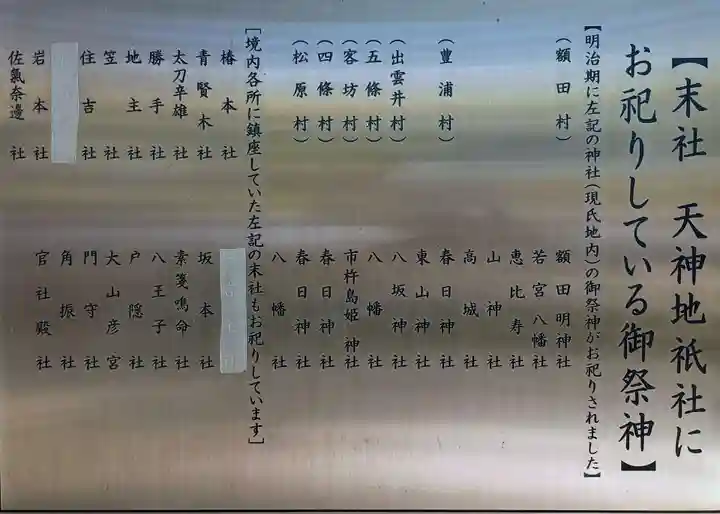 【末社 天神地祇社に
お祀りしている御祭神】
【明治期に左記の神社(現氏地内)の御祭神がお祀りされました】
(額田村) 額田明神社
若宮八幡社
恵比寿社
山神社
高城社
(豊浦村) 春日神社
東山神社
(出雲井村) 八坂神社
(五條村) 八幡社
(客坊村) 市杵島姫神社
(四條村) 春日神社
(松原村) 春日神社
八幡社
[境内各所に鎮座していた左記の末社もお祀りしています]
椿本社
青賢木社 坂本社
太刀辛雄社 素戔嗚命社
勝手社 八王子社
地主社 戸隠社
笠社 大山彦宮
住吉社 門守社
角振社
岩本社 官社殿社
佐氣奈邊社